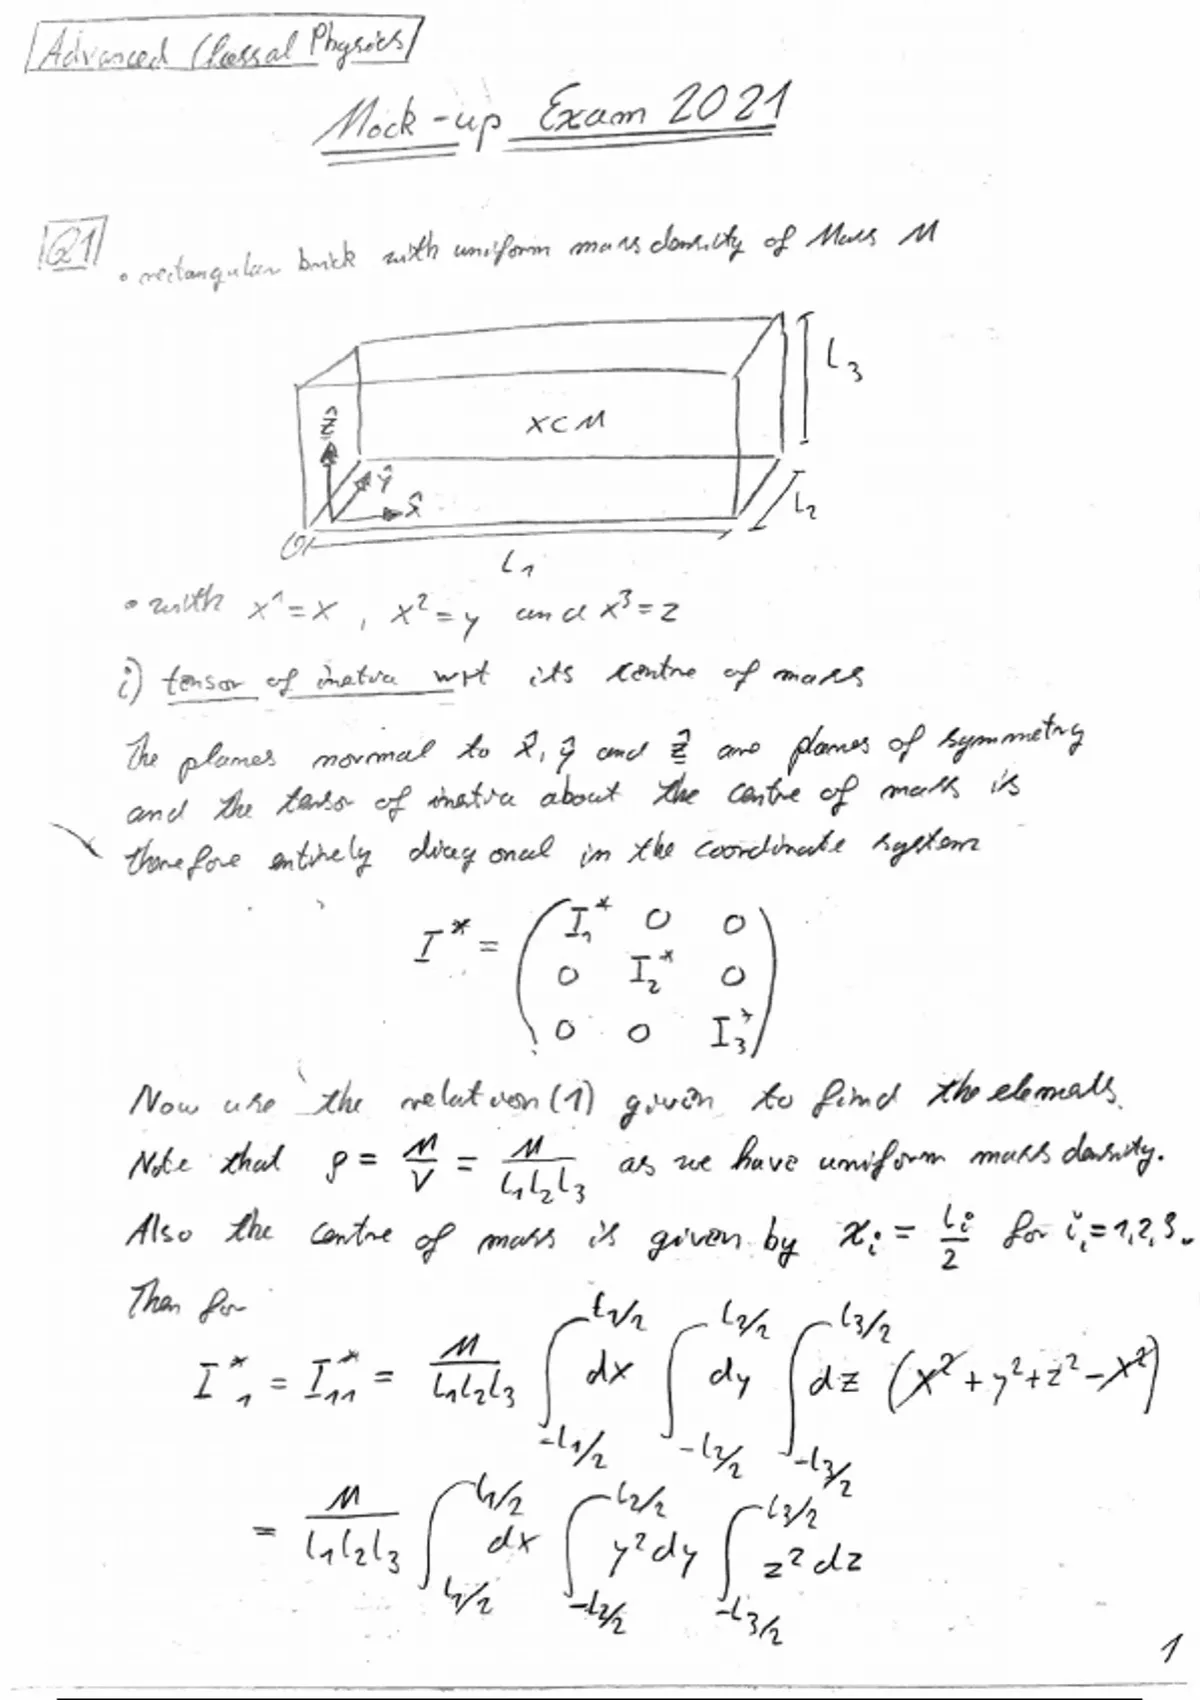 Advanced Classal Physics
Mock-up Exam 2021
Q1
• rectangular brick with uniform mass density of Mass M
L3
ẑ
xCM
ŷ
x̂
L2
O
L1
• with x¹=x, x²=y and x³=z
i) tensor of inetia wrt its centre of mass
The planes normal to x̂, ŷ and ẑ are planes of symmetry
and the tensor of inetia about the centre of mass is
therefore entirely diagonal in the coordinate system
I* = ( I₁* 0 0
0 I₂* 0
0 0 I₃* )
Now use the relation (1) given to find the elements.
Note that ρ = M/V = M/(L₁L₂L₃) as we have uniform mass density.
Also the centre of mass is given by xᵢ = Lᵢ/2 for i=1,2,3.
Then for
I*₁ = I*₁₁ = M/(L₁L₂L₃) ∫_{-L₁/2}^{L₁/2} dx ∫_{-L₂/2}^{L₂/2} dy ∫_{-L₃/2}^{L₃/2} dz (x²+y²+z²-x²)
= M/(L₁L₂L₃) ∫_{L₁/2}^{L₁/2} dx ∫_{-L₂/2}^{L₂/2} y²dy ∫_{-L₃/2}^{L₃/2} z²dz
1